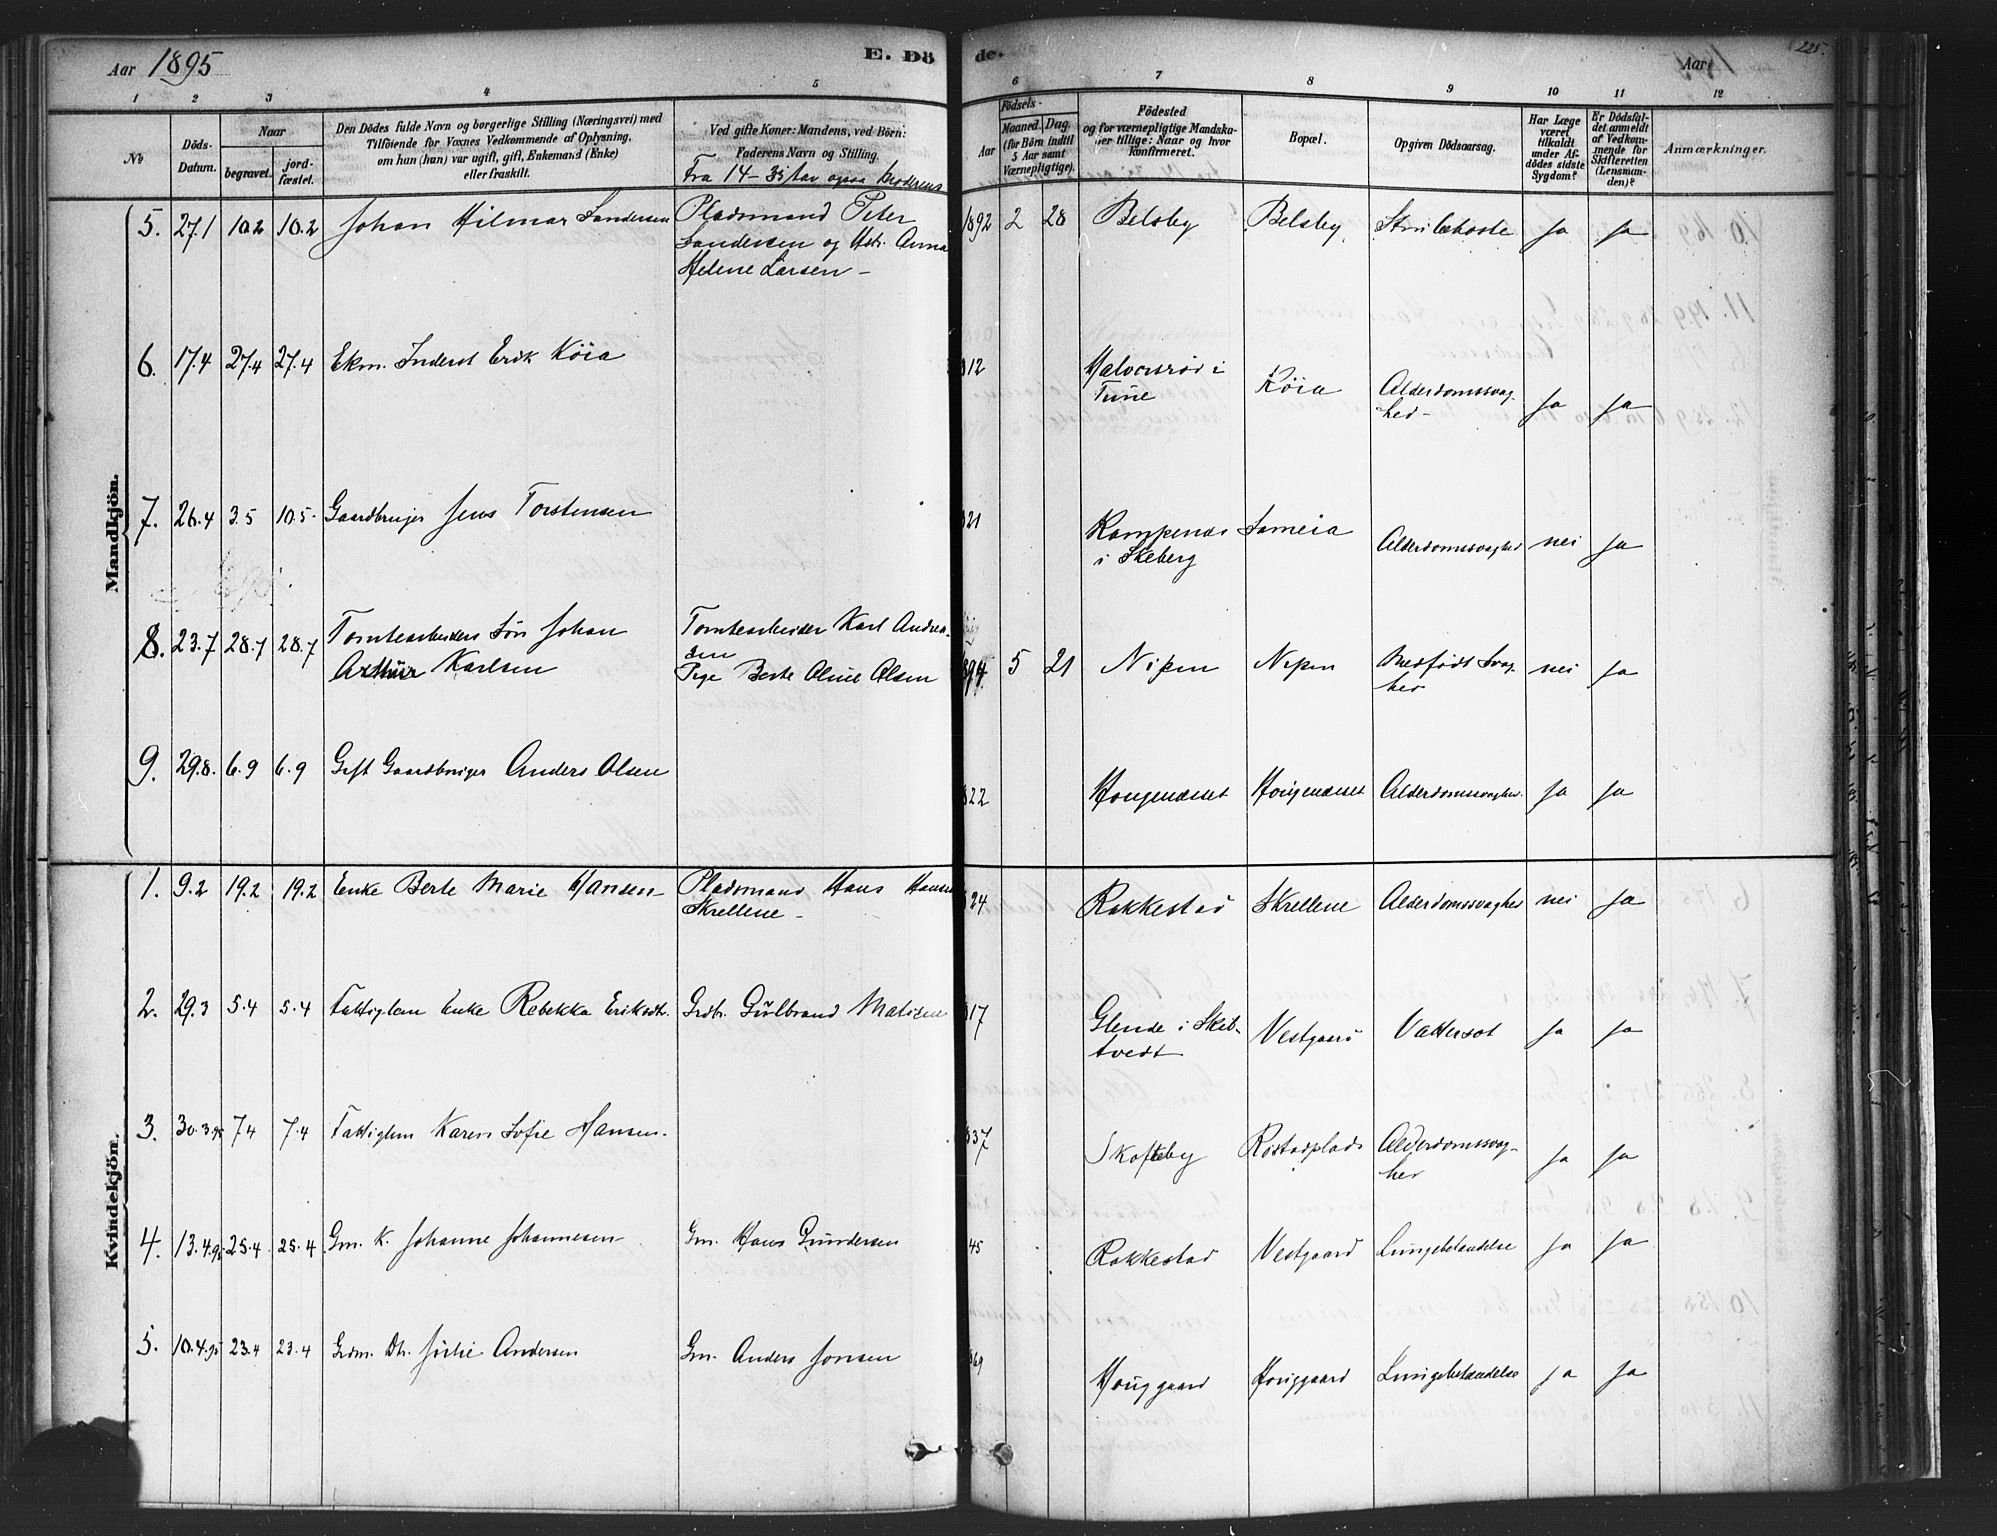 Aar 1895
E. Dö
de.
Aar
225.
1 2 3 4 5 6 7 8 9 10 11 12
No
Döds-
Datum.
Naar
begravet.
jord-
fæstet.
Den Dödes fulde Navn og borgerlige Stilling (Næringsvei) med
Tilföiende for Voxnes Vedkommende af Oplysning,
om han (hun) var ugift, gift, Enkemand (Enke)
eller fraskilt.
Ved gifte Koner: Mandens, ved Börn:
Faderens Navn og Stilling.
Fra 14-
Födsels-
Aar
Maaned. Dag.
(for Börn indtil
5 Aar samt
Værnepligtige).
Födested
og for værnepligtige Mandska-
ber tillige: Naar og hvor
konfirmeret.
Bopæl.
Opgiven Dödsaarsag.
Har Læge
været
tilkaldt
under Af-
dödes sidste
Sygdom?
Er Dödsfal-
det anmeldt
af Vedkom-
mende for
Skifteretten
(Lensman-
den)?
Anmærkninger.
Mandkjön.
5. 27.1 10.2 10.2 Johan Hilmar Sandersen Pladsmand Peter
Sandersen og Hstr. Anna
Helene Larsen -
1892 2 28 Belsby Belsby. Strubehoste Ja Ja
6. 17.4 27.4 27.4 Ekm. Inderst Erik Köia
812 Halvorsröd i
Tune Köia Alderdomssvag-
hed- Ja Ja
7. 26.4 3.5 10.5. Gaardbruger Jens Torstensen
821 Kampenæs
i Skeberg Sameia Alderdomssvaghed nei Ja
8. 23.7 28.7 28.7 Tomtearbeiders Sön Johan
Arthur Karlsen
Tomtearbeider Karl Andrea-
sen
Pige Berte Oline Olsen
894 5 21 Nipen Nipen Medfödt Svag-
hed nei Ja
9. 29.8. 6.9 6.9 Gift Gaardbruger Anders Olsen
822 Hougenæsset Hougenæsset Alderdomssvaghed. Ja Ja
Kvindekjön.
1. 9.2 19.2 19.2 Enke Berte Marie Hansen Pladsmand Hans Hansen
Skrellene -
824 Rakkestad Skrellene Alderdomssvaghed nei Ja
2. 29.3 5.4 5.4 Fattiglem Enke Rebekka Eriksdtr. Grdbr. Gulbrand Matisen
817 Glende i Skib-
tvedt Vestgaard Vattersot Ja Ja
3. 30.3.95 7.4 7.4 Fattiglem Karen Sofie Hansen.
837 Skofteby Röstadplads Alderdomssvag-
hed Ja Ja
4. 13.4.95 25.4 25.4 Gm. K. Johanne Johannesen Gm. Hans Gundersen
45 Rakkestad Vestgaard Lungebetændelse Ja Ja
5. 10.4.95 23.4 23.4 Grdm. Dtr. Julie Andersen Gm. Anders Jonsen
869 Houggaard Houggaard Lungebetændelse Ja Ja